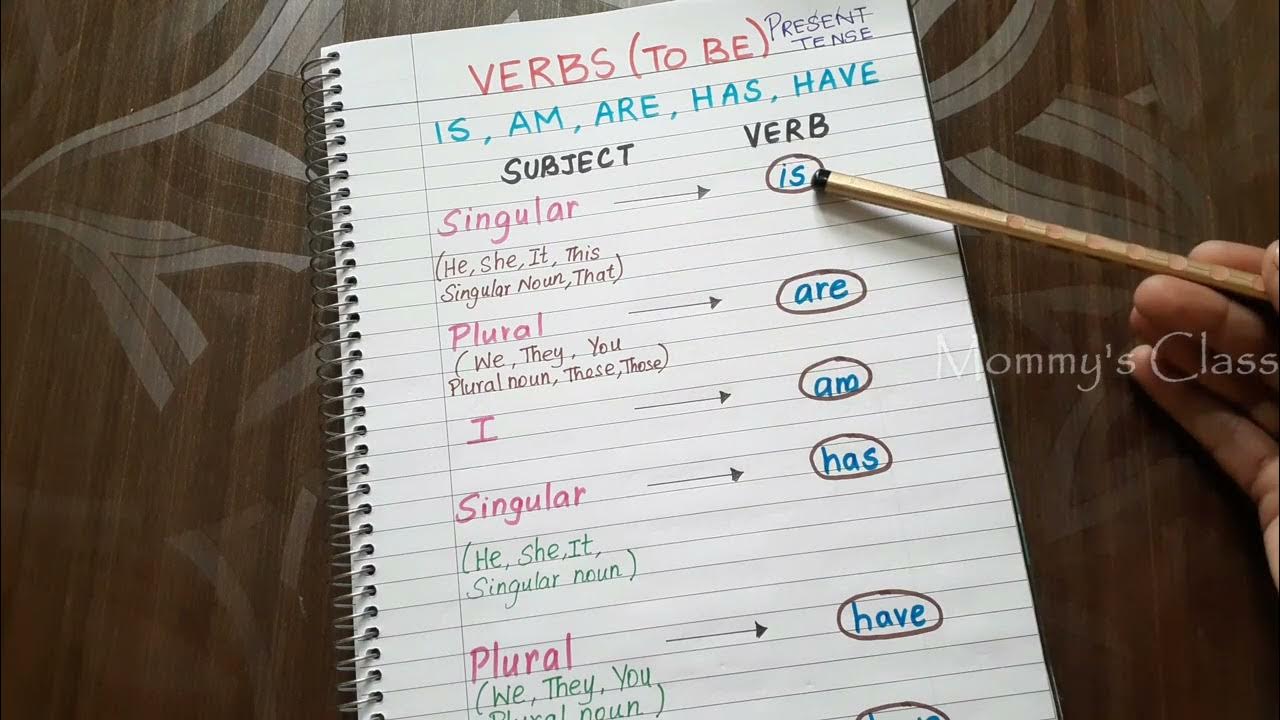 VERBS (TO BE) PRESENT
TENSE
IS, AM, ARE, HAS, HAVE
SUBJECT VERB
Singular is
(He, She, It, This
Singular Noun, That)
Plural are
(We, They, You
Plural noun, These, Those)
I am
Singular has
(He, She, It,
Singular noun)
Plural have
(We, They, You,
Plural noun)
Mommy's Class